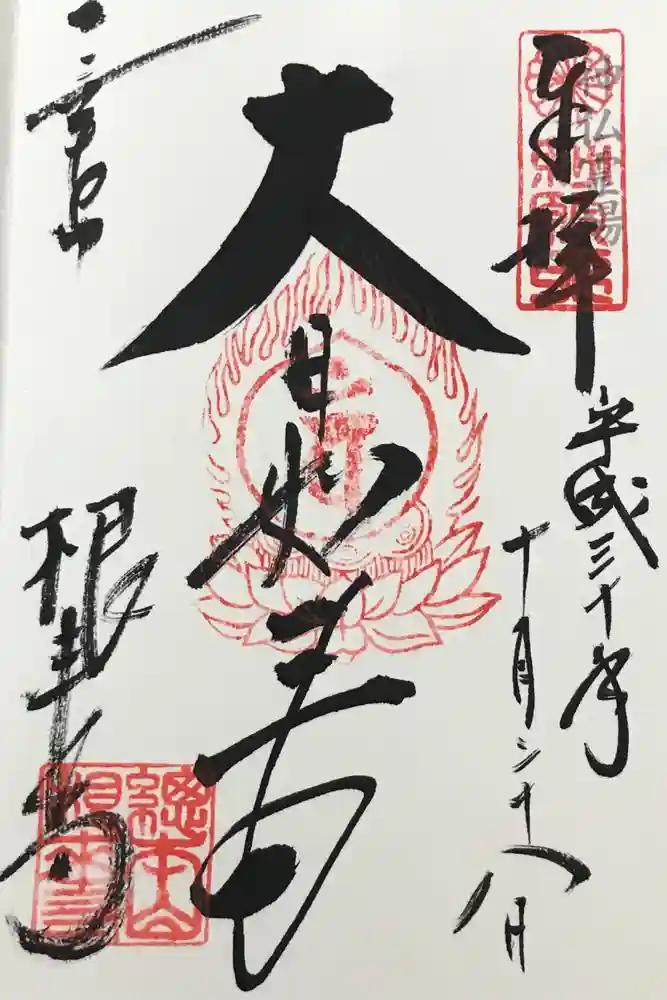 神仏霊場
奉拝
平成三十年
十月二十八日
大日如来
一乗山
根来寺
總本山
根来寺